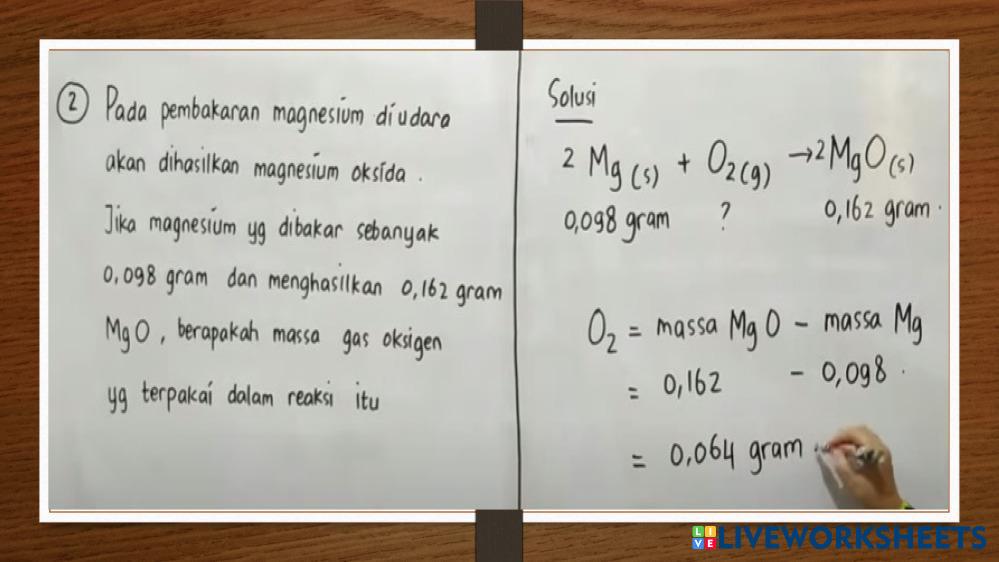 2 Pada pembakaran magnesium diudara
akan dihasilkan magnesium oksida .
Jika magnesium yg dibakar sebanyak
0,098 gram dan menghasilkan 0,162 gram
MgO , berapakah massa gas oksigen
yg terpakai dalam reaksi itu
Solusi
2 Mg (s) + O2(g) → 2 MgO(s)
0,098 gram ? 0,162 gram .
O2 = massa MgO − massa Mg
= 0,162 − 0,098 .
= 0,064 gram
LIVE LIVEWORKSHEETS